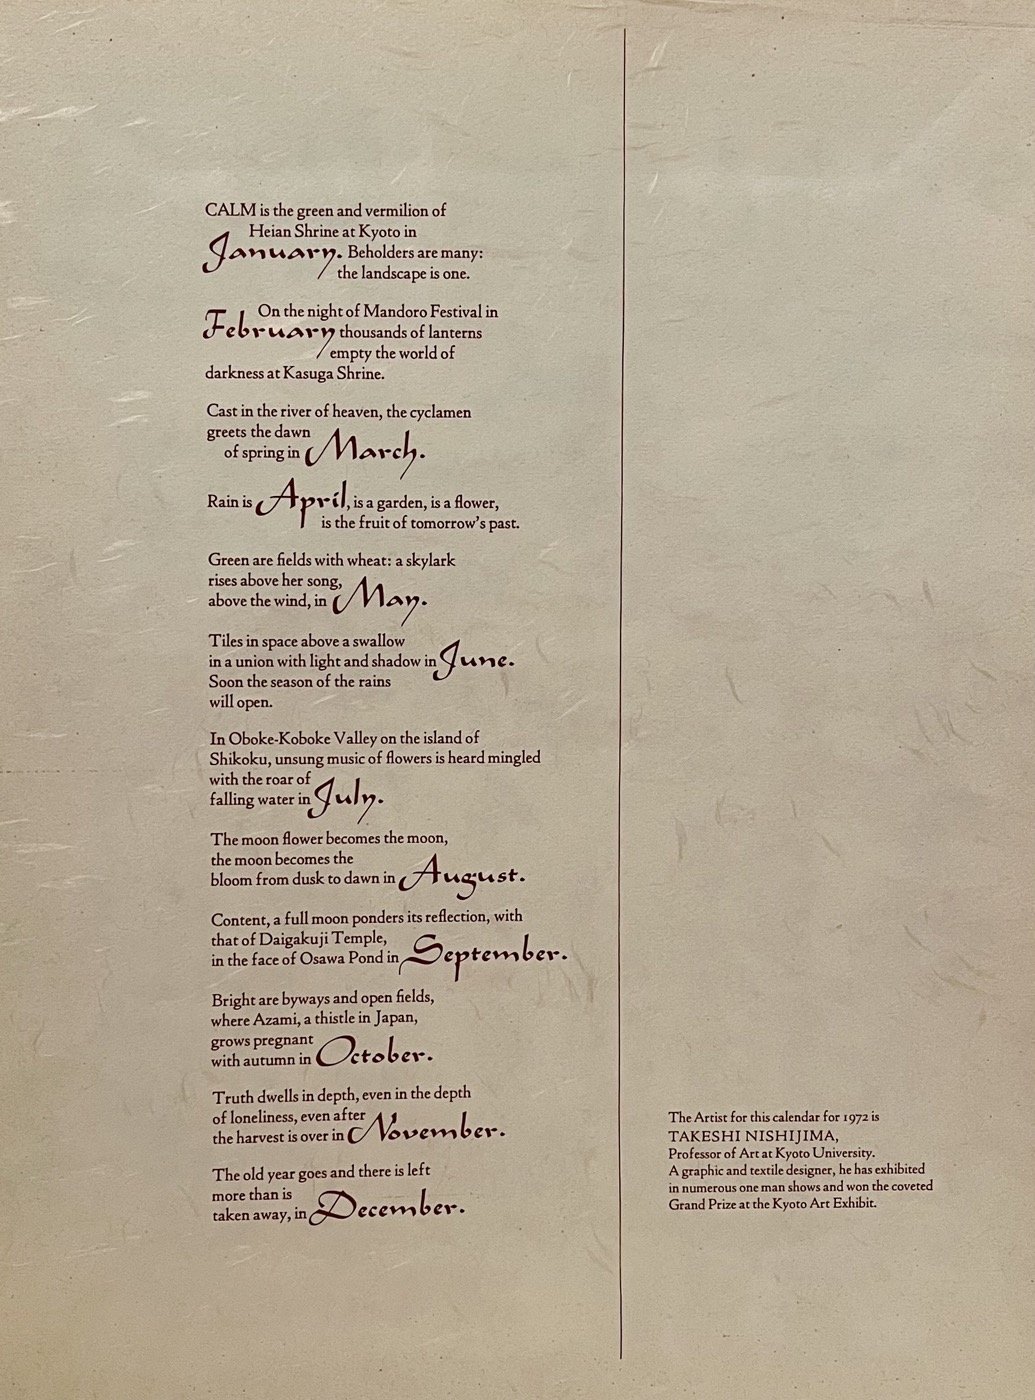 CALM is the green and vermilion of
Heian Shrine at Kyoto in
January. Beholders are many:
the landscape is one.
On the night of Mandoro Festival in
February thousands of lanterns
empty the world of
darkness at Kasuga Shrine.
Cast in the river of heaven, the cyclamen
greets the dawn
of spring in March.
Rain is April, is a garden, is a flower,
is the fruit of tomorrow's past.
Green are fields with wheat: a skylark
rises above her song,
above the wind, in May.
Tiles in space above a swallow
in a union with light and shadow in June.
Soon the season of the rains
will open.
In Oboke-Koboke Valley on the island of
Shikoku, unsung music of flowers is heard mingled
with the roar of
falling water in July.
The moon flower becomes the moon,
the moon becomes the
bloom from dusk to dawn in August.
Content, a full moon ponders its reflection, with
that of Daigakuji Temple,
in the face of Osawa Pond in September.
Bright are byways and open fields,
where Azami, a thistle in Japan,
grows pregnant
with autumn in October.
Truth dwells in depth, even in the depth
of loneliness, even after
the harvest is over in November.
The old year goes and there is left
more than is
taken away, in December.
The Artist for this calendar for 1972 is
TAKESHI NISHIJIMA,
Professor of Art at Kyoto University.
A graphic and textile designer, he has exhibited
in numerous one man shows and won the coveted
Grand Prize at the Kyoto Art Exhibit.